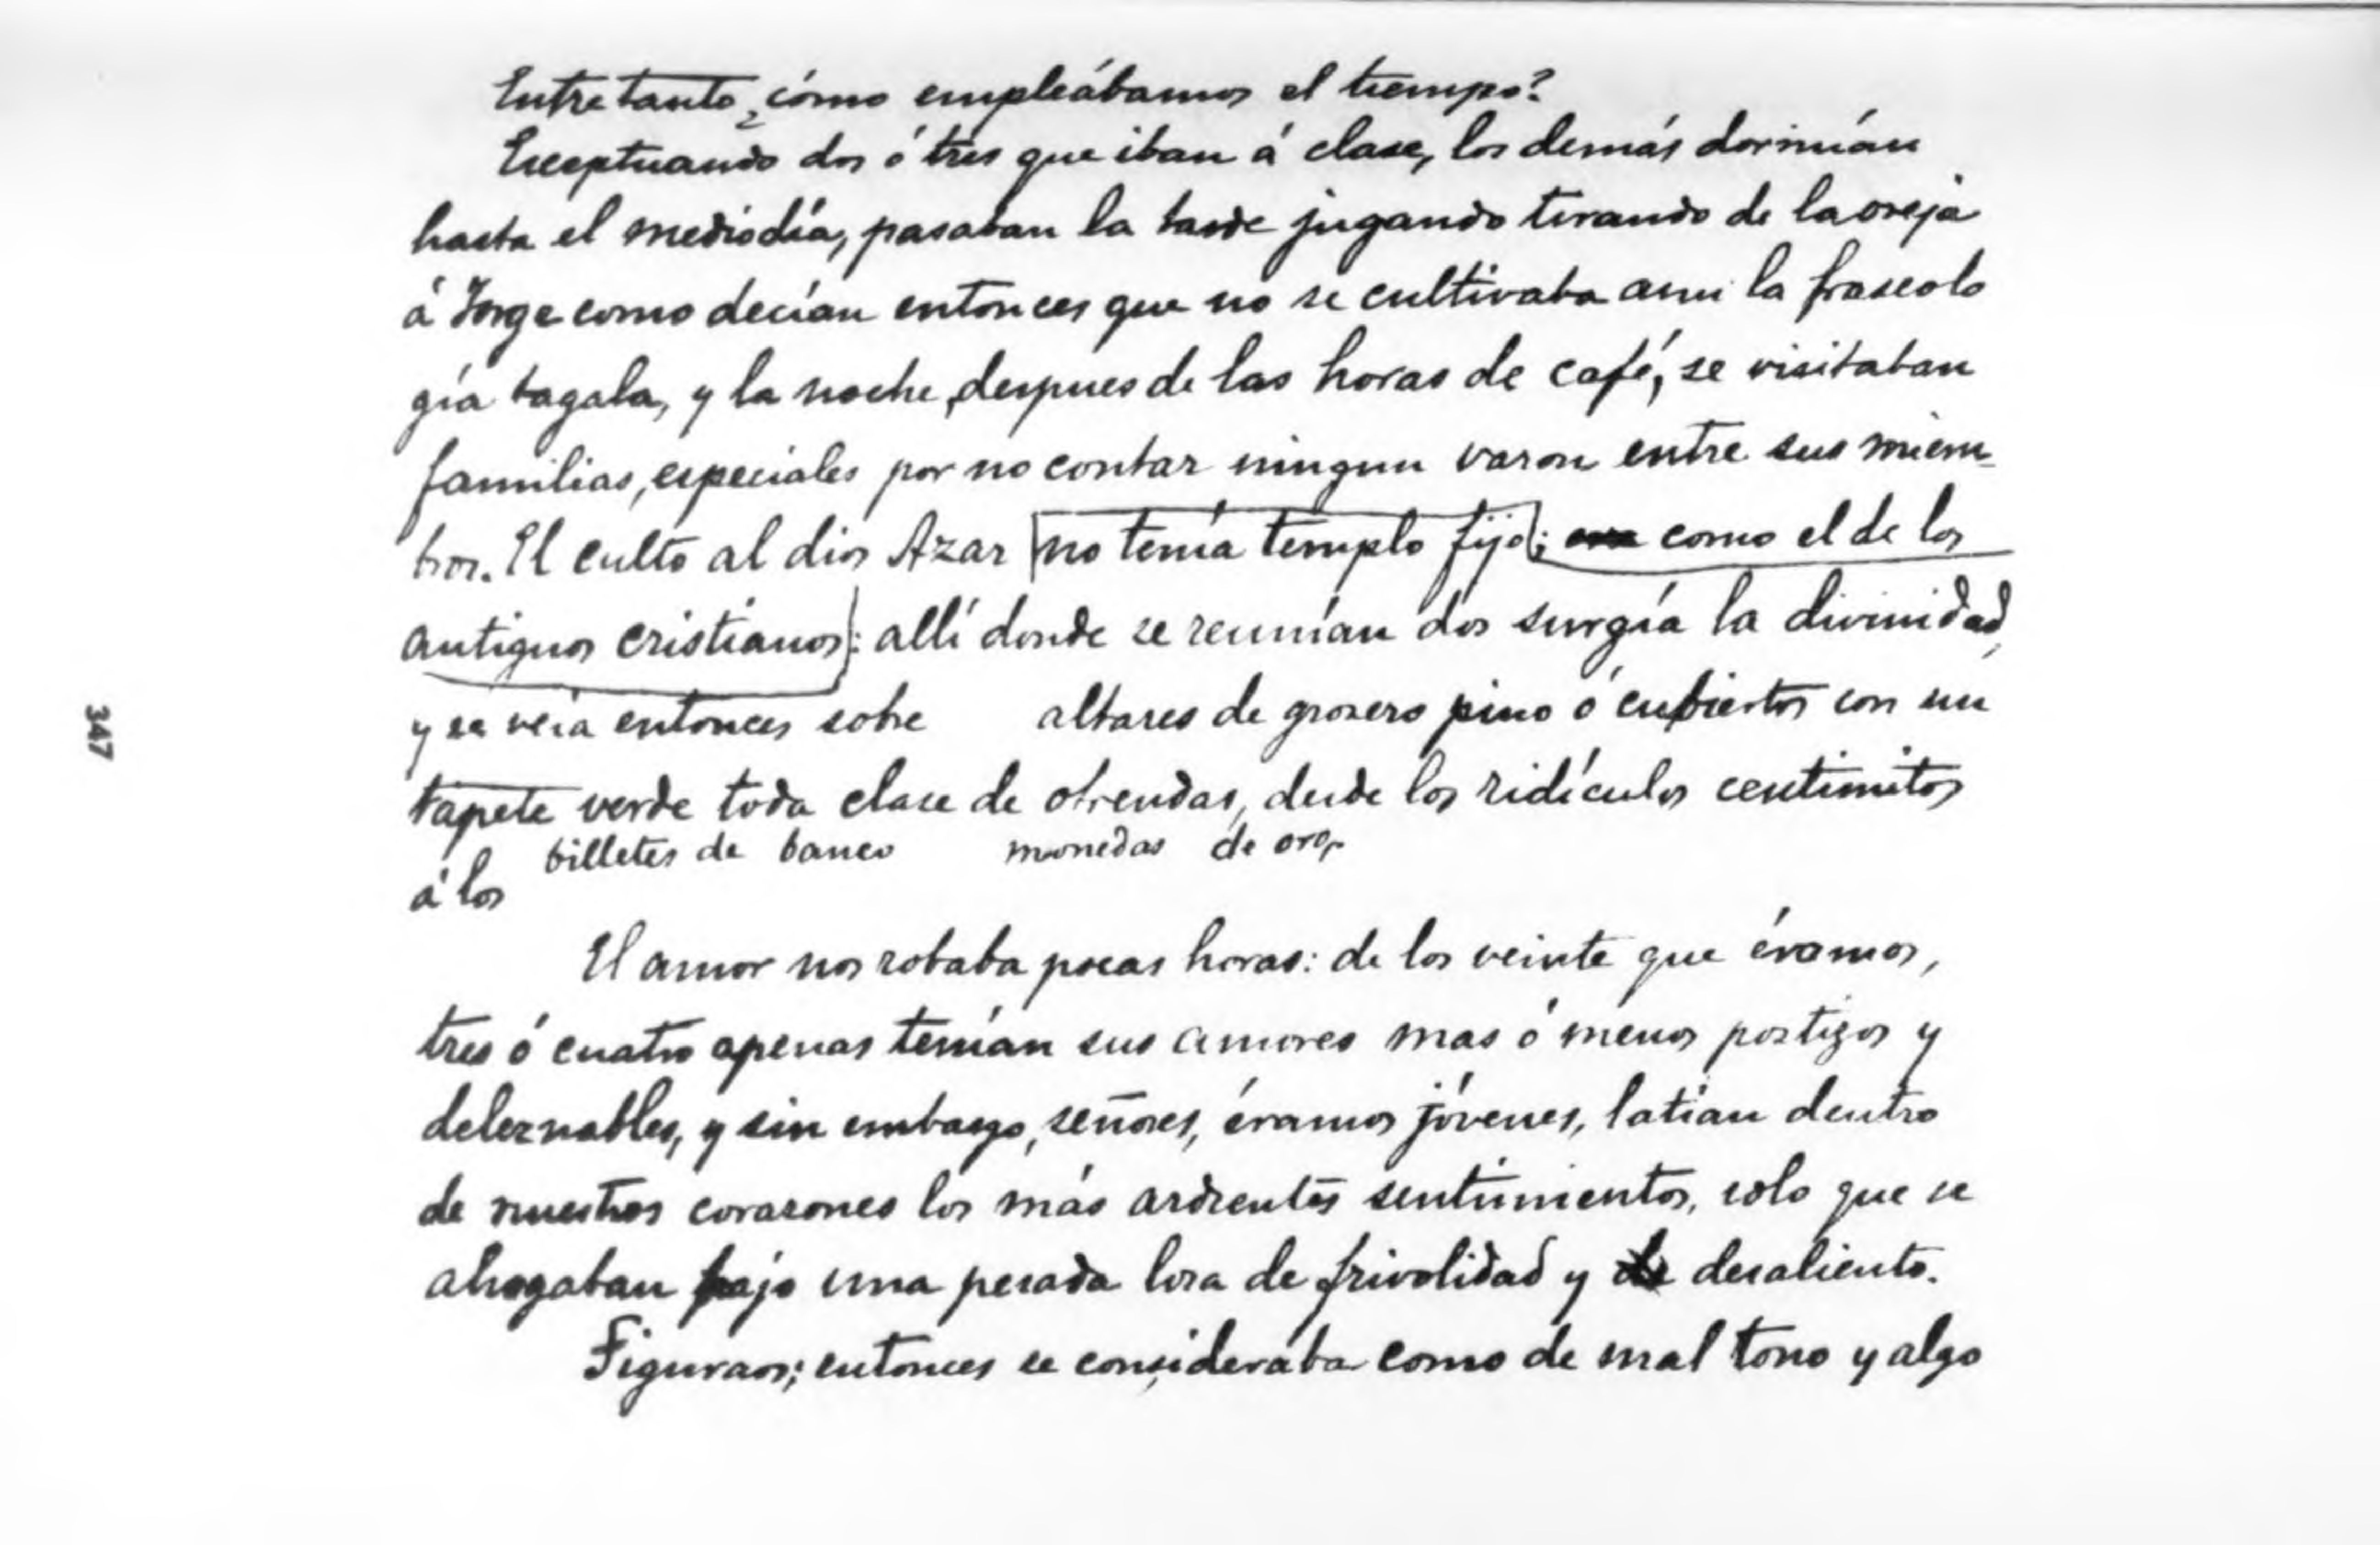 Entretanto ¿cómo empleábamos el tiempo?
Exceptuando dos ó tres que iban á clase, los demás dormían
hasta el mediodía, pasaban la tarde jugando tirando de la oreja
á Jorge como decían entonces que no se cultivaba aun la fraseolo
gía tagala, y la noche, despues de las horas de café, se visitaban
familias, especiales por no contar ningun varon entre sus miem-
bros. El culto al dios Azar no tenía templo fijo; como el de los
antiguos cristianos: allí donde se reunían dos surgía la divinidad,
y se veía entonces sobre altares de grosero pino ó cubiertos con un
tapete verde toda clase de ofrendas, desde los ridículos centimitos
billetes de banco monedas de oro,
á los
El amor nos robaba pocas horas: de los veinte que éramos,
tres ó cuatro apenas tenían sus amores mas ó menos postizos y
deleznables, y sin embargo, señores, éramos jóvenes, latían dentro
de nuestros corazones los más ardientes sentimientos, solo que se
ahogaban bajo una pesada losa de frivolidad y desaliento.
Figuraos; entonces se consideraba como de mal tono y algo
347